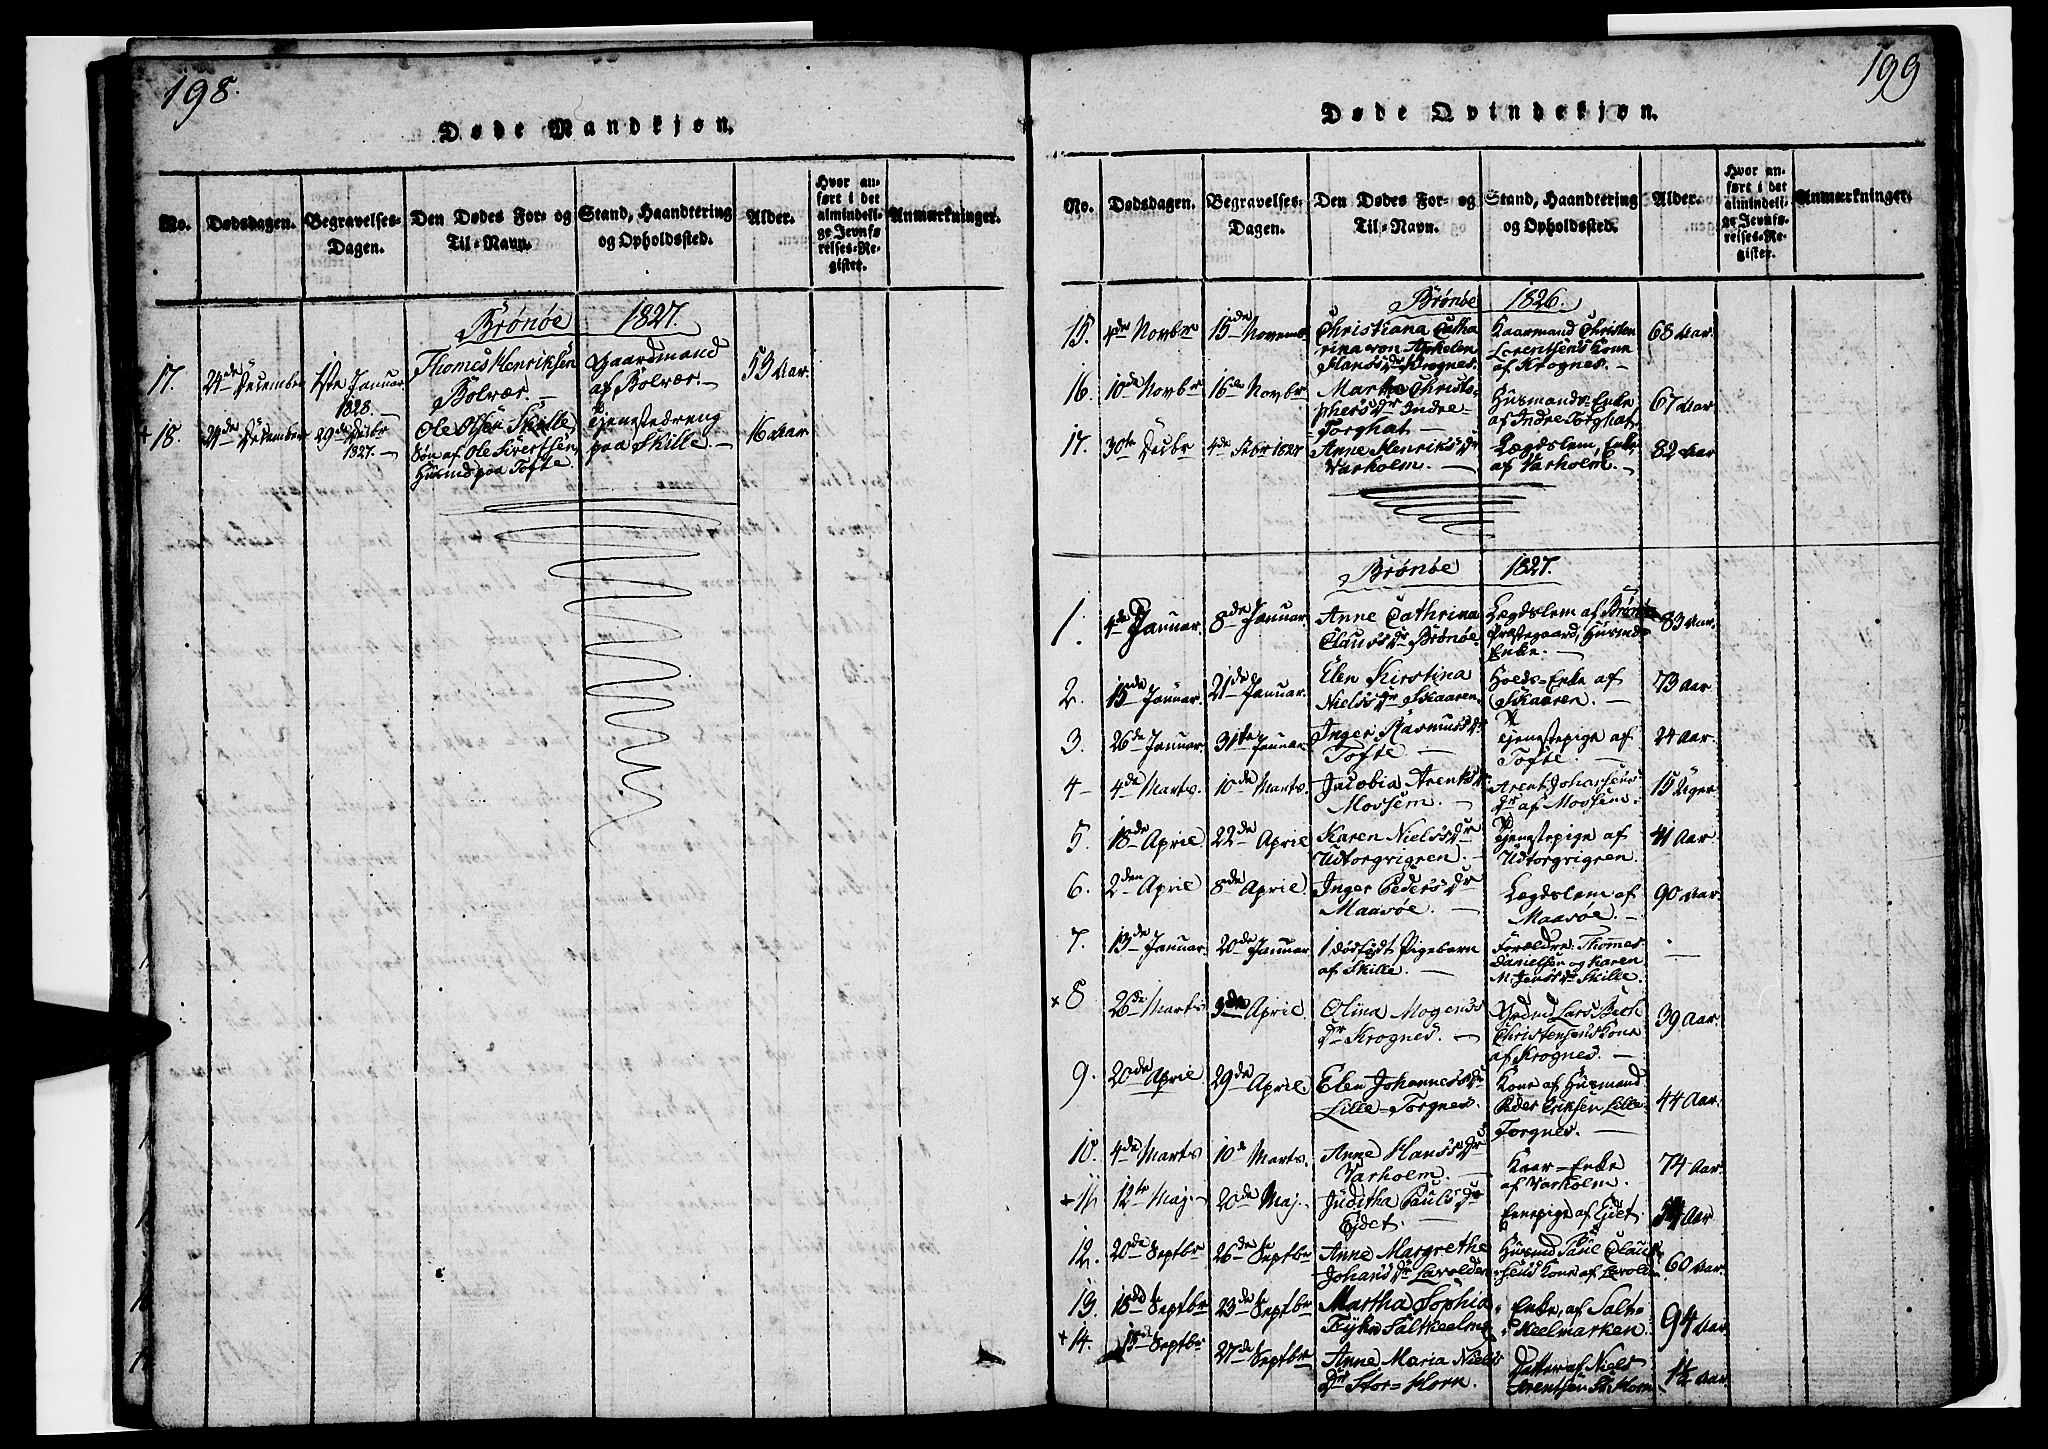 198.
Døde Mandkjøn.
No.
Dødsdagen.
Begravelses-
Dagen.
Den Dødes For- og
Til-Navn.
Stand, Haandtering
og Opholdssted.
Alder.
Hvor an-
ført i det
almindeli-
ge Jevnfø-
relses-Re-
gister.
Anmærkninger.
Brønøe 1827.
17. 24de December 1ste Januar 1828. Thomas Henriksen Bolvær. Gaardmand af Bolvær. 53 Aar.
+ 18. 24de December 29de Decbr 1827. Ole Olsen Skille, Søn af Ole Sivertsen, Huusmd paa Tofte. Tjenestedreng paa Skille. 16 Aar
199
Døde Qvindekjøn.
No.
Dødsdagen.
Begravelses-
Dagen.
Den Dødes For- og
Til-Navn.
Stand, Haandtering
og Opholdssted.
Alder.
Hvor an-
ført i det
almindeli-
ge Jevnfø-
relses-Re-
gister.
Anmærkninger.
Brønøe 1826.
15. 4de Novbr 15de Novemb Christiana Catharina von Aphelen Hansdr Krognes. Kaarmand Christen Lorentsens Kone af Krognes. 68 Aar.
16. 10de Novbr 16de Novbr Martha Christophersdr Indre-Torghat. Huusmands-Enke af Indre Torghat 67 Aar.
17. 30te Decbr 4de Febr 1827 Anne Henriksdr Varholm. Lægdslem, Enke af Varholm. 82 Aar
Brønøe 1827.
1. 4de Januar. 8de Januar. Anne Cathrina Clausdr Brønøe. Lægdslem af Brønøe Præstegaard, Huusmds Enke. 83 Aar.
2. 15de Januar. 21de Januar. Elen Kirstina Nielsdr Skaaren. Enke af Skaaren. 73 Aar
3. 26de Januar. 31te Januar. Inger Rasmusdr Tofte. Tjenestepige af Tofte. 24 Aar.
4 4de Marts. 10de Marts. Jacobia Arentsdr Mossem. Arent Johansens Dr af Mossem. 15 Uger
5. 18de April 22de April Karen Nielsdr Udtorgrigren. Tjenestepige af Udtorgrigren. 41 Aar.
6. 2den April 8de April. Inger Pedersdr Maasøe. Lægdslem af Maasøe. 90 Aar.
7. 13de Januar. 20de Januar 1 dødfødt Pigebarn af Skille. Forældre: Thomas Danielsen og Karen M. Jensdr Skille.
+ 8 26de Marts 3die April. Olina Mogensdr Krognes. Lars Bech Christensens Kone af Krognes. 39 Aar.
9. 20de April 29de April. Elen Johannesdr Lille-Torgnes. Kone af Huusmand Peder Eriksen Lille-Torgnes. 44 Aar.
10. 4de Marts 10de Marts. Anne Hansdr Varholm. Kaar-Enke af Varholm. 74 Aar.
+ 11. 12te Maj. 20de Maj. Juditha Paulsdr Ejdet. af Ejdet. Aar
12. 20de Septbr 26de Septbr Anne Margrethe Johansdr Huusmd Paul Clausens Kone af 60 Aar.
13. 15de Septbr 23de Septbr Martha Sophia Saltkeelma Enke, af Saltkeelmarken. 94 Aar
+ 14. 15de Septbr 27de Septbr Anne Maria Nielsdr Stor-Horn. Datter af Niels Arentsen St. Horn Aar.